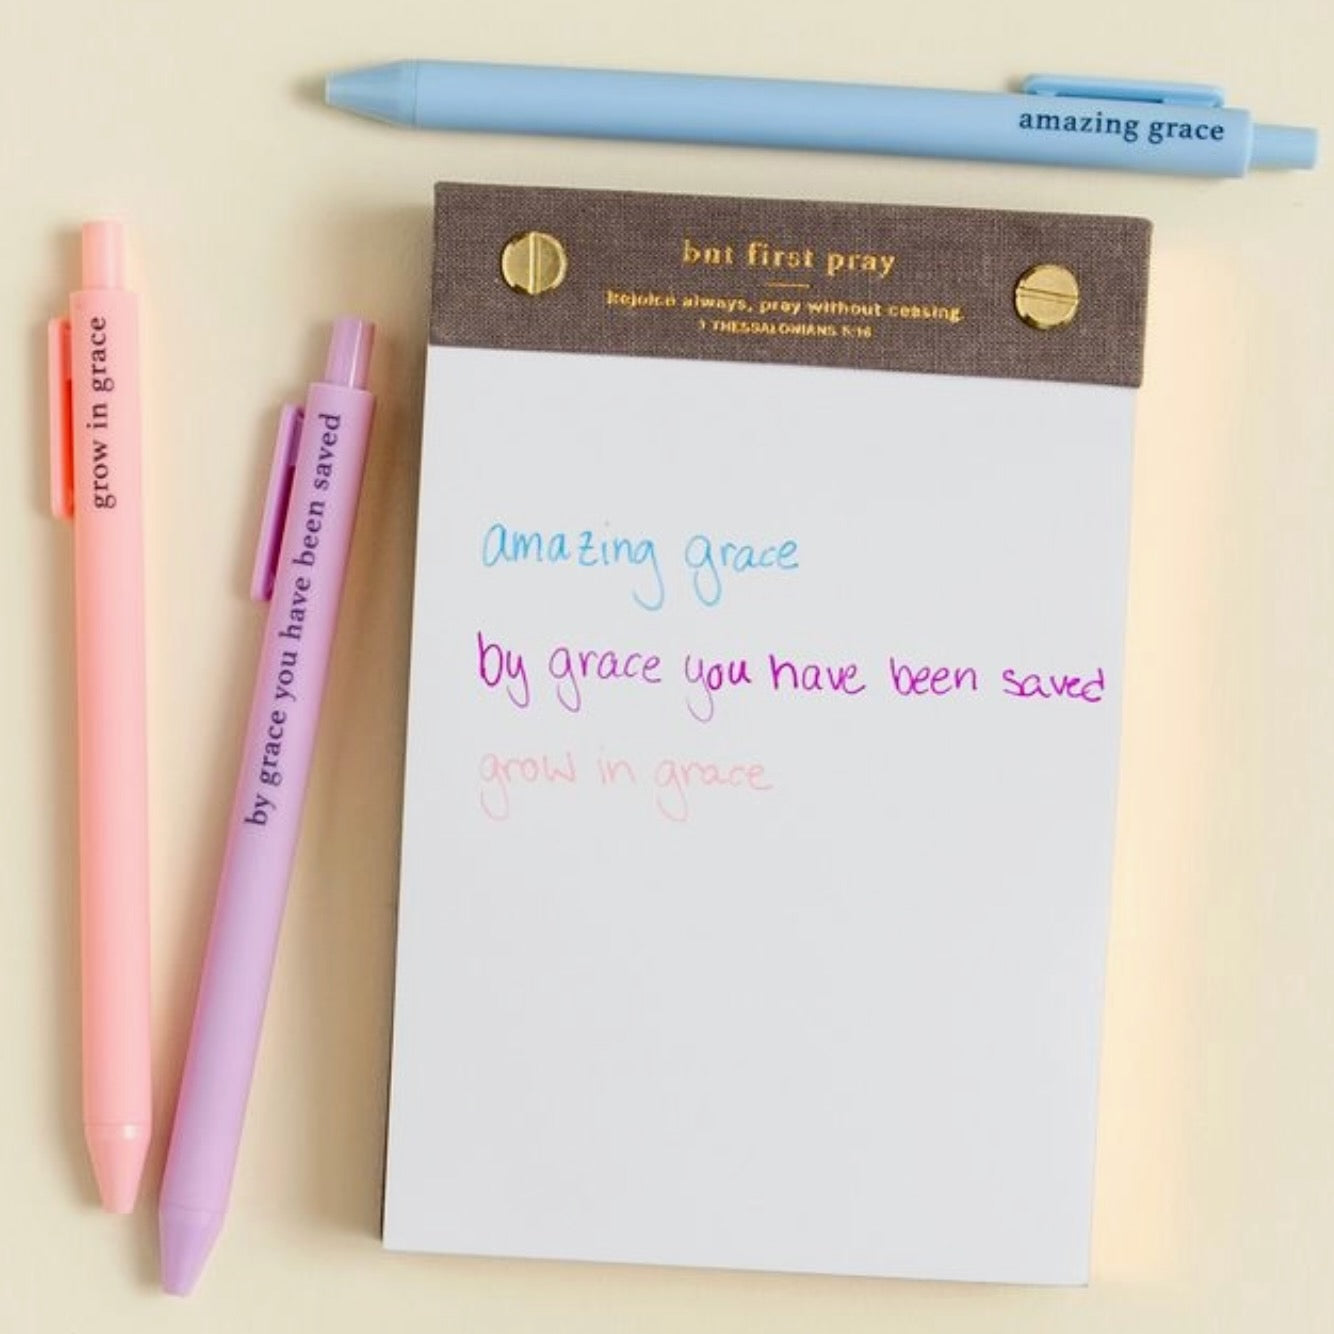 amazing grace
but first pray
Rejoice always, pray without ceasing.
1 THESSALONIANS 5:16
grow in grace
by grace you have been saved
amazing grace
by grace you have been saved
grow in grace